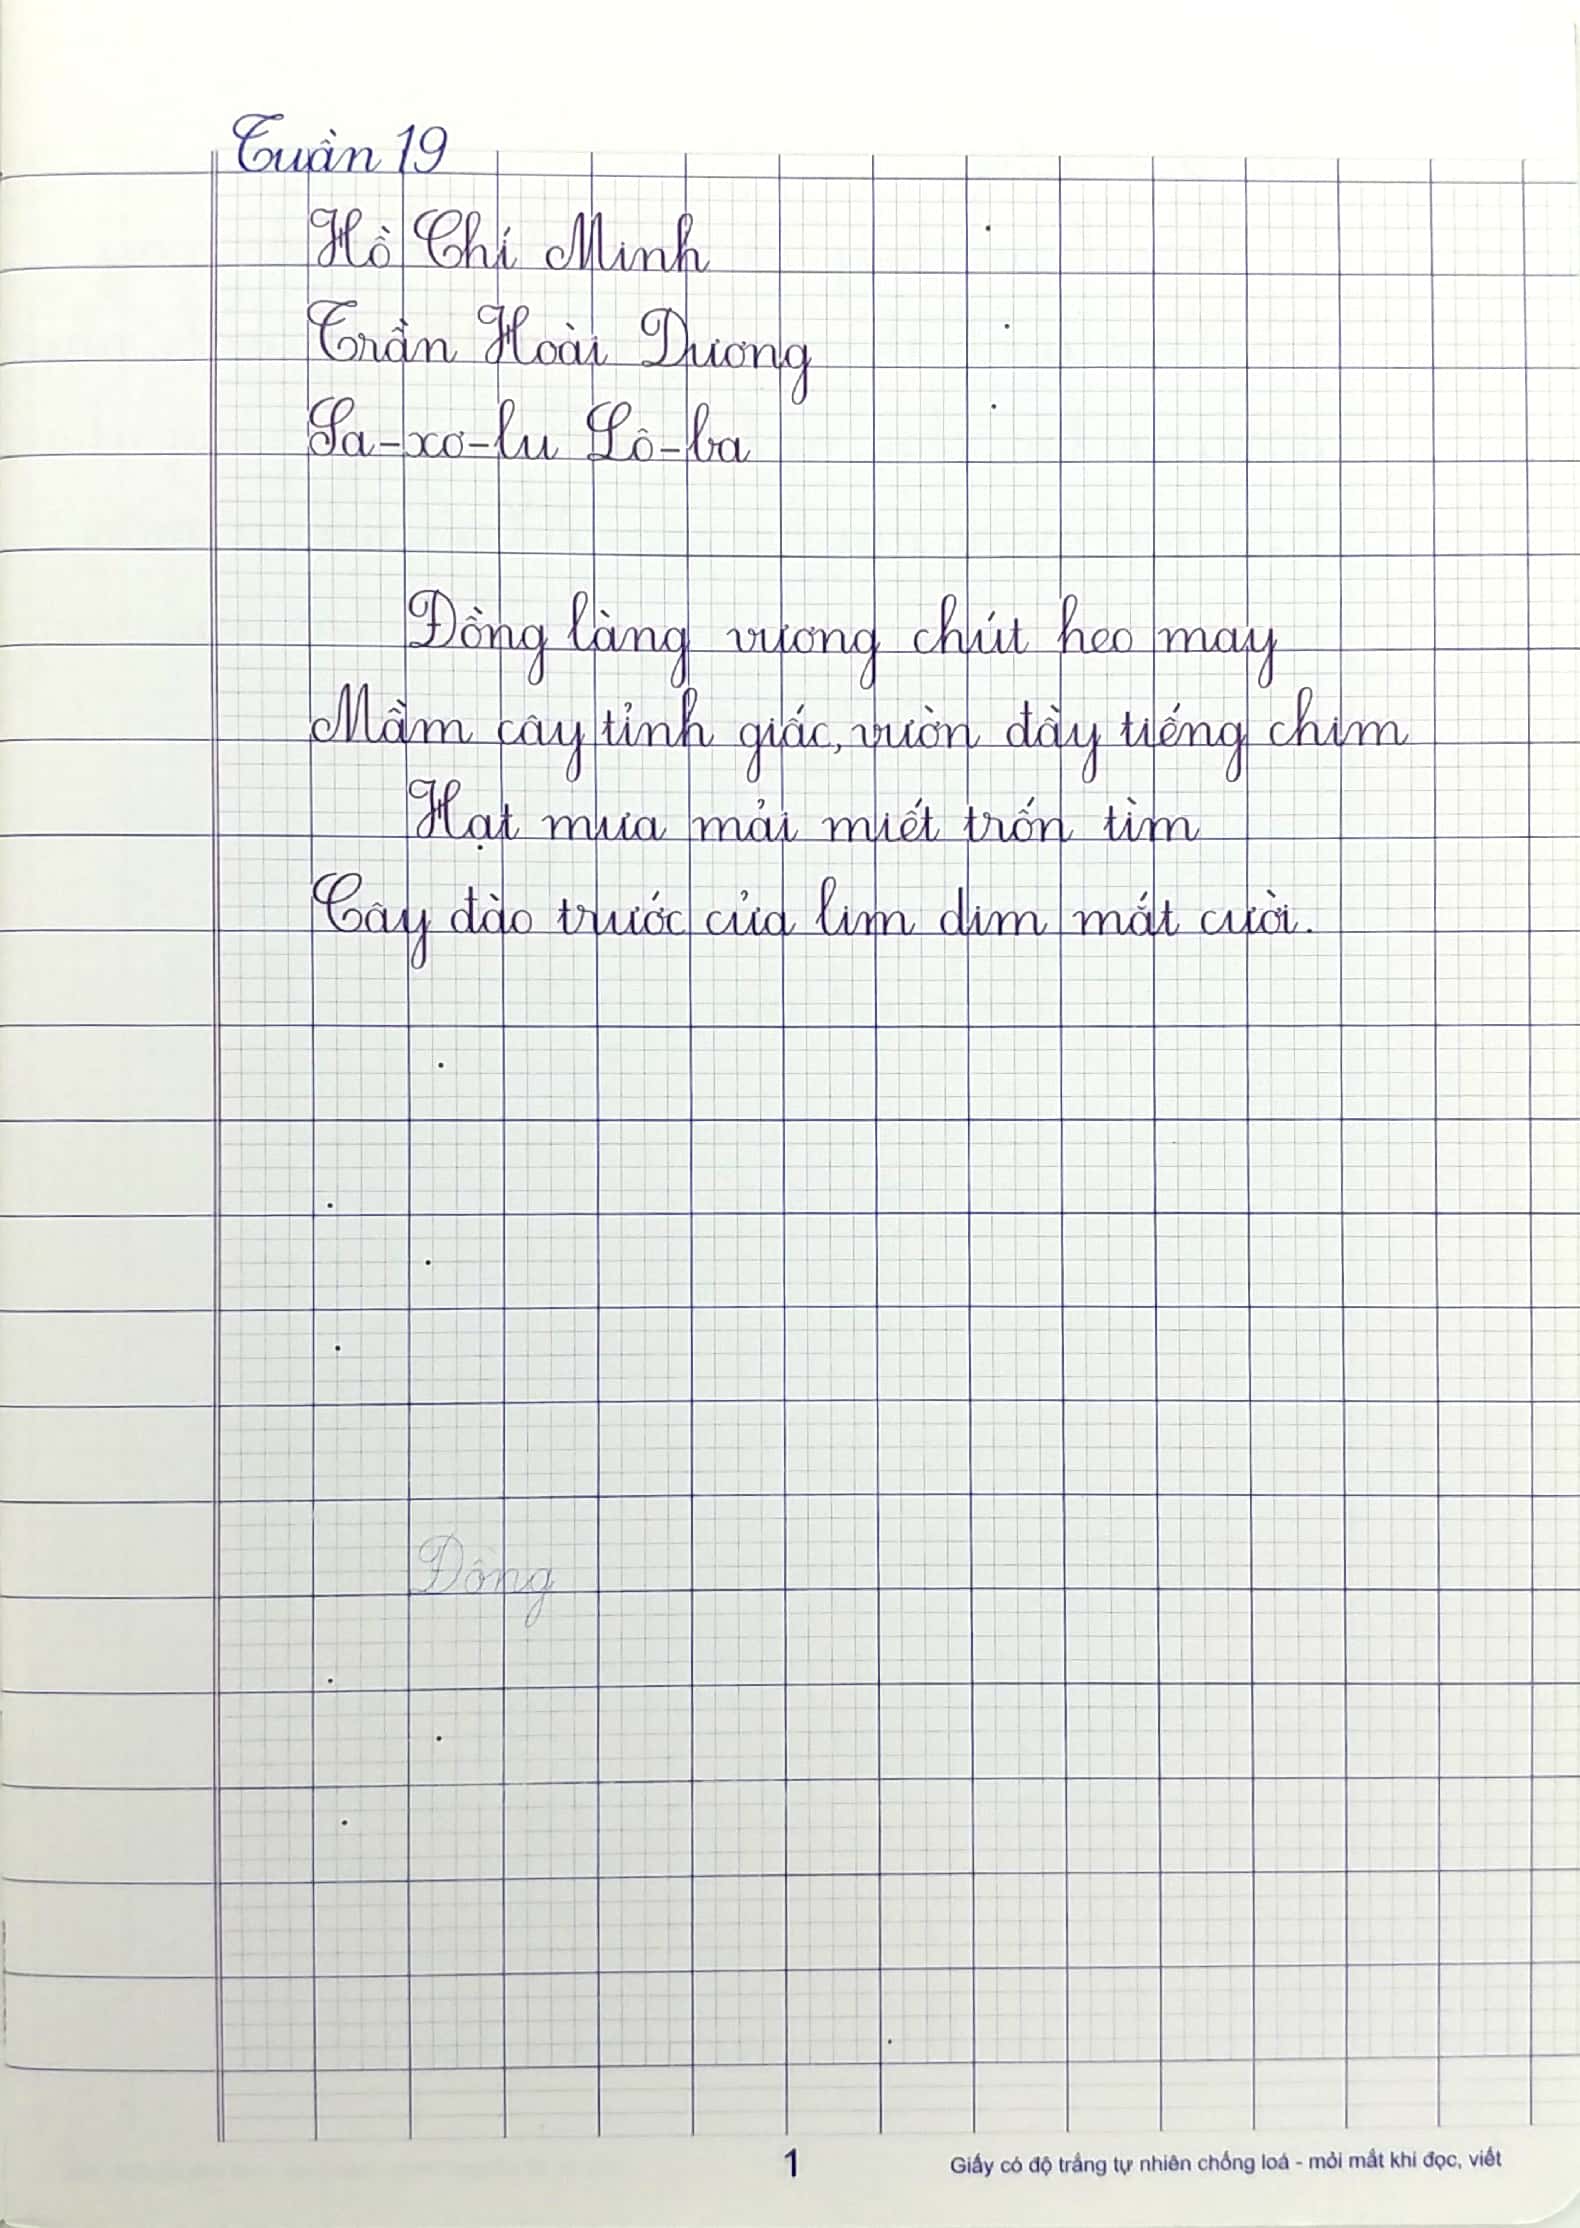 Tuần 19
Hồ Chí Minh
Trần Hoài Dương
Sa-xơ-lu Lô-ba
Đồng làng vương chút heo may
Mầm cây tỉnh giấc, vườn đầy tiếng chim
Hạt mưa mải miết trốn tìm
Cây đào trước cửa lim dim mắt cười.
Đồng
1
Giấy có độ trắng tự nhiên chống loá - mỏi mắt khi đọc, viết